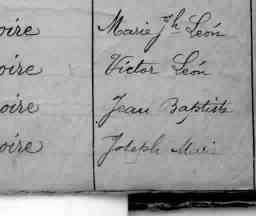 oire Marie Jh León
oire Victor León
oire Jean Baptiste
oire Joseph